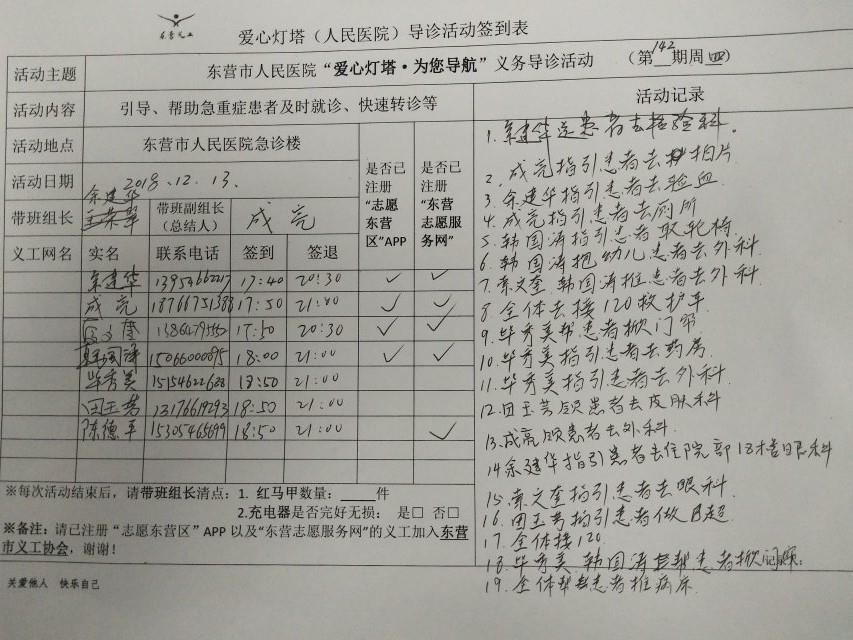 东营义工
爱心灯塔（人民医院）导诊活动签到表
活动主题 东营市人民医院“爱心灯塔·为您导航”义务导诊活动 （第142期周四）
活动内容 引导、帮助急重症患者及时就诊、快速转诊等
活动地点 东营市人民医院急诊楼
活动日期 2018.12.13.
带班组长 余建华 带班副组长（总结人） 成亮
是否已注册“志愿东营区”APP
是否已注册“东营志愿服务网”
义工网名 实名 联系电话 签到 签退
余建华 13954662217 17:40 20:30 ✓ ✓
成亮 18766751388 17:50 21:00 ✓ ✓
文奎 17:50 20:30 ✓ ✓
韩国涛 15066000895 18:00 21:00 ✓ ✓
毕秀美 15154622688 18:50 21:00
田玉芳 13176619293 18:50 21:00
陈德平 15305465699 18:50 21:00 ✓
※每次活动结束后，请带班组长清点：1. 红马甲数量：_____件
2.充电器是否完好无损： 是□ 否□
※备注：请已注册“志愿东营区”APP 以及“东营志愿服务网”的义工加入东营
市义工协会，谢谢！
关爱他人 快乐自己
活动记录
1. 余建华送患者去检验科.
2. 成亮指引患者去拍片
3. 余建华指引患者去验血
4. 成亮指引患者去厕所
5. 韩国涛指引患者取轮椅
6. 韩国涛抱幼儿患者去外科
7. 索文奎 韩国涛推患者去外科.
8. 全体去接120救护车
9. 毕秀美帮患者掀门帘
10. 毕秀美指引患者去药房
11. 毕秀美指引患者去外科
12. 田玉芳领患者去皮肤科
13. 成亮领患者去外科.
14 余建华指引患者去住院部13楼眼科
15. 索文奎指引患者去眼科.
16. 田玉芳指引患者做B超
17. 全体接120.
18. 毕秀美 韩国涛帮患者掀门帘.
19. 全体帮患者推病床